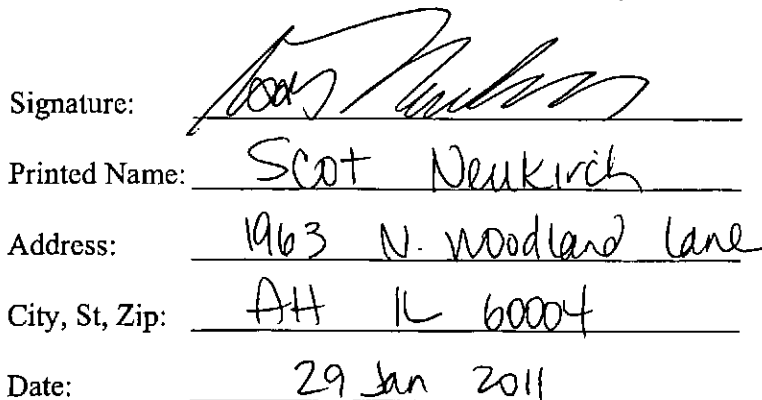 Signature:
Printed Name: Scot Neukirch
Address: 1963 N. Woodland Lane
City, St, Zip: AH IL 60004
Date: 29 Jan 2011